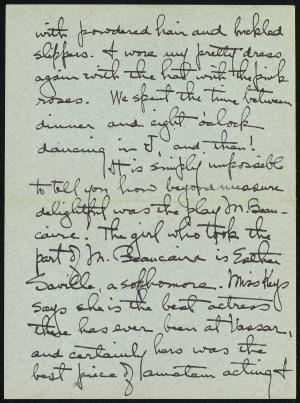 with powdered hair and buckled
slippers. I wore my pretty dress
again with the hat with the pink
roses. We spent the time between
dinner and eight o'clock
dancing in J, and then!
It is simply impossible
to tell you how beyond measure
delightful was the play M. Beau-
caire! The girl who took the
part of M. Beaucaire is Esther
Saville, a sophomore. Miss Keys
says she is the best actress
there has ever been at Vassar,
and certainly hers was the
best piece of amateur acting I